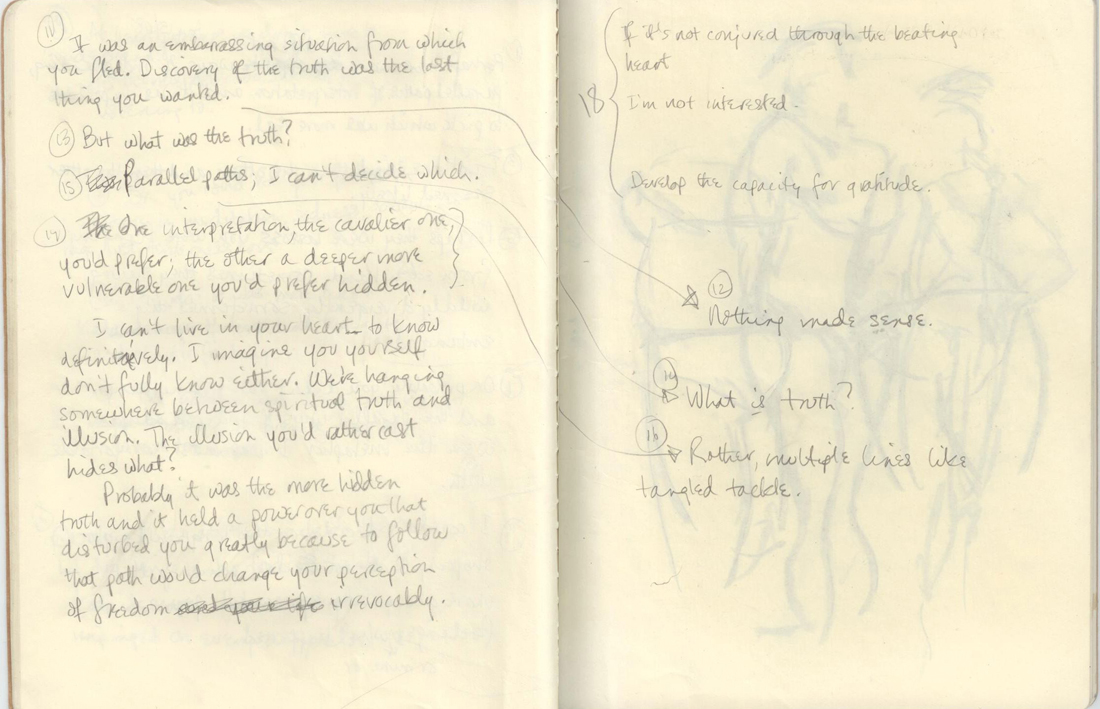 11
It was an embarrassing situation from which
you fled. Discovery of the truth was the last
thing you wanted.
13 But what was the truth?
15 Parallel paths; I can't decide which.
17 One interpretation, the cavalier one,
you'd prefer; the other a deeper more
vulnerable one you'd prefer hidden.
I can't live in your heart to know
definitively. I imagine you yourself
don't fully know either. We're hanging
somewhere between spiritual truth and
illusion. The illusion you'd rather cast
hides what?
Probably it was the more hidden
truth and it held a power over you that
disturbed you greatly because to follow
that path would change your perception
of freedom and your life irrevocably.
If it's not conjured through the beating
heart
18
I'm not interested.
Develop the capacity for gratitude.
12
Nothing made sense.
14
What is truth?
16
Rather, multiple lines like
tangled tackle.